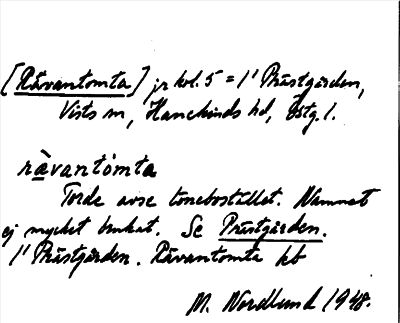 [Råvantomta] jr kol. 5 = 1/1 Prästgården,
Vists sn, Hanekinds hd, Östg. l.
ràvantómta
Torde avse bostället. Namnet
ej mycket brukat. Se Prästgården.
1/1 Prästgården. Råvantomta kb
M. Nordlund 1948.